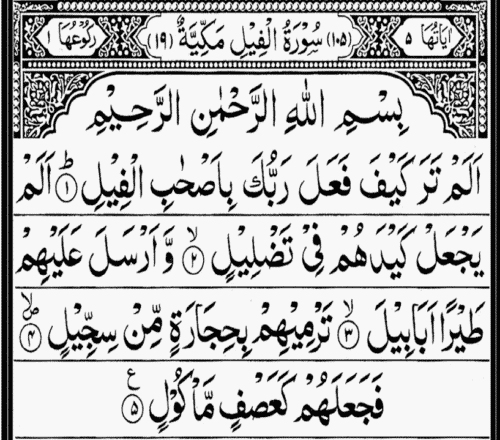 اٰیَاتُهَا ۵ (۱۰۵) سُوْرَةُ الْفِیْلِ مَكِّیَّةٌ (۱۹) رُكُوْعُهَا ۱
بِسْمِ اللّٰهِ الرَّحْمٰنِ الرَّحِیْمِ
اَلَمْ تَرَ كَیْفَ فَعَلَ رَبُّكَ بِاَصْحٰبِ الْفِیْلِ ؕ﴿۱﴾ اَلَمْ
یَجْعَلْ كَیْدَهُمْ فِیْ تَضْلِیْلٍ ۙ﴿۲﴾ وَّ اَرْسَلَ عَلَیْهِمْ
طَیْرًا اَبَابِیْلَ ۙ﴿۳﴾ تَرْمِیْهِمْ بِحِجَارَةٍ مِّنْ سِجِّیْلٍ ۪ۙ﴿۴﴾
فَجَعَلَهُمْ كَعَصْفٍ مَّاْكُوْلٍ ﴿۵﴾ ع